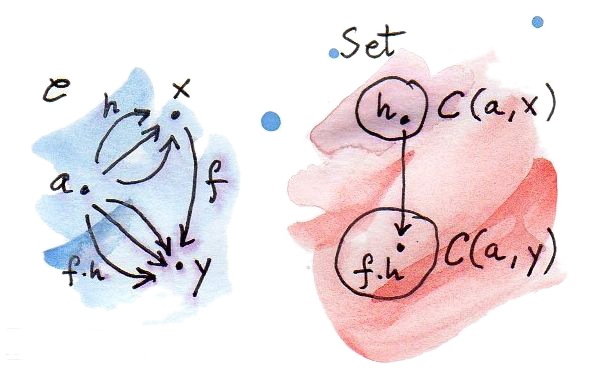 C
h
x
a
f
f∘h
y
Set
h
C(a,x)
f∘h
C(a,y)